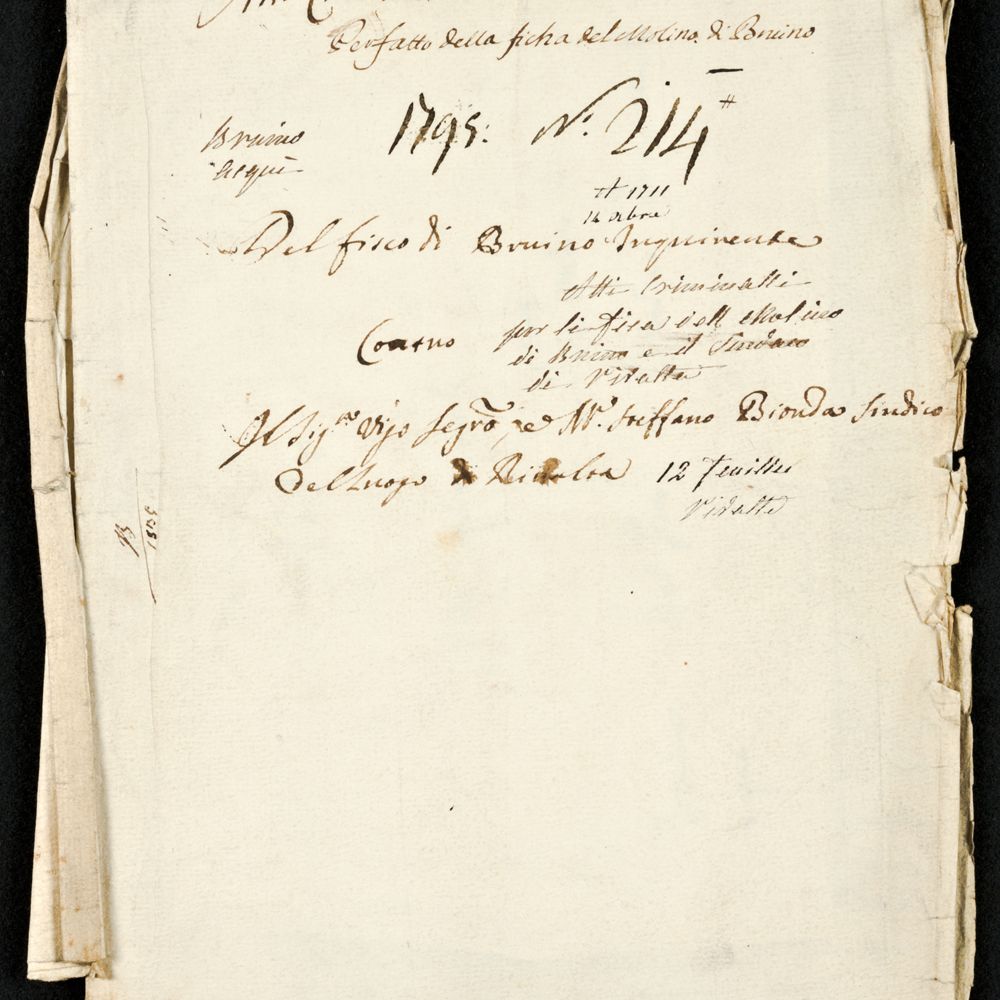 Perfatto della ficha del Molino di Bruino
Bruino
acque
1795: N.° 214 #
# 1711
14 xbre
Del fisco di Bruino Inquirente
Atti Criminalli
per la fica dell Molino
di Bruino e il Sindaco
di Rivalta
Contro
Il Sig.re Vijo Segro, e Mr. Steffano Bionda Sindico
Del Luogo di Rivalta 12 feuilles
Rivalta